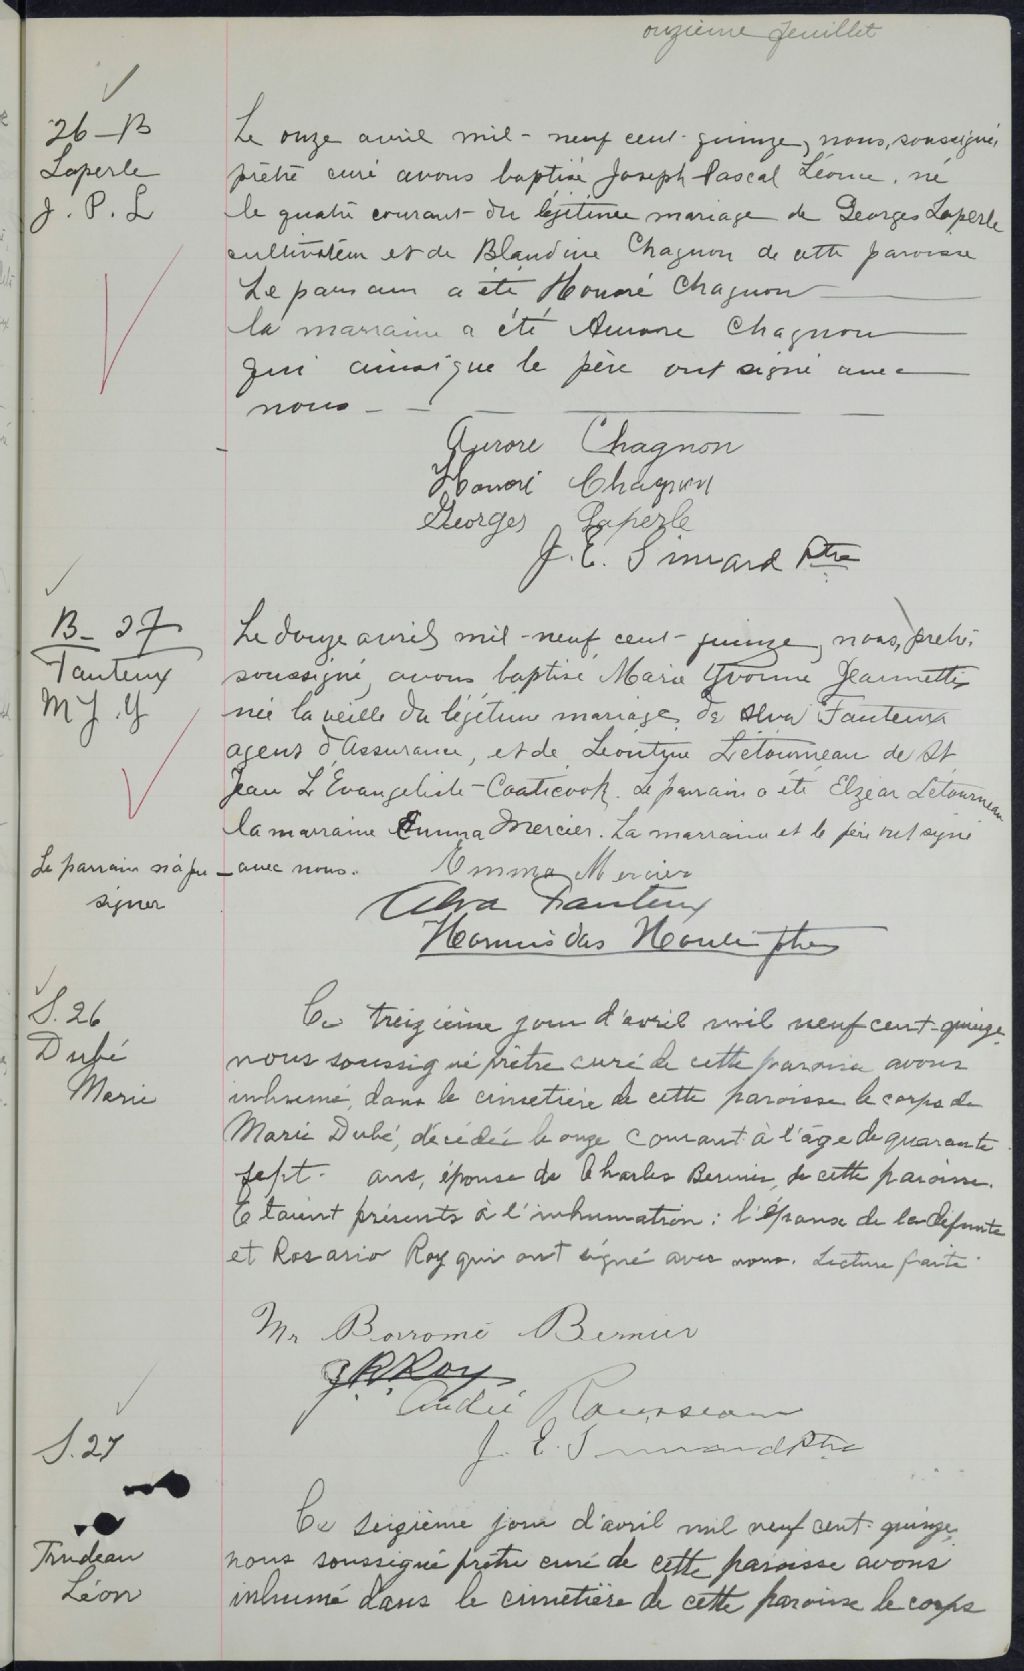 onzième feuillet
26 - B
Laperle
J. P. L
Le onze avril mil - neuf cent - quinze, nous, soussigné,
prêtre curé avons baptisé Joseph Pascal Léonce, né
le quatre courant du légitime mariage de Georges Laperle
cultivateur et de Blandine Chagnon de cette paroisse
Le parrain a été Honoré Chagnon
la marraine a été Aurore Chagnon
qui ainsi que le père ont signé avec
nous
Aurore Chagnon
Honoré Chagnon
Georges Laperle
J. E. Simard Ptre
B - 27
Fauteux
M J. Y
Le douze avril mil - neuf cent - quinze, nous, prêtre
soussigné, avons baptisé Marie Yvonne Jeannette
née la veille du légitime mariage de Alva Fauteux
agent d'Assurance, et de Léontine Létourneau de St
Jean L'Évangeliste - Coaticook. Le parrain a été Elzéar Létourneau
la marraine Emma Mercier. La marraine et le père ont signé
avec nous.
Le parrain n'a pu
signer
Emma Mercier
Alva Fauteux
Hormisdas ptre
S. 26
Dubé
Marie
Ce treizième jour d'avril mil neuf cent - quinze,
nous soussigné prêtre curé de cette paroisse avons
inhumé, dans le cimetière de cette paroisse le corps de
Marie Dubé, décédée le onze courant à l'âge de quarante
sept ans, épouse de Charles Bernier, de cette paroisse.
Étaient présents à l'inhumation : l'époux de la défunte
et Rosario Roy qui ont signé avec nous. Lecture faite
Mr Borromé Bernier
J. R. Roy
André Rousseau
J. E. Simard Ptre
S. 27
Trudeau
Léon
Ce seizième jour d'avril mil neuf cent - quinze,
nous soussigné prêtre curé de cette paroisse avons
inhumé dans le cimetière de cette paroisse le corps